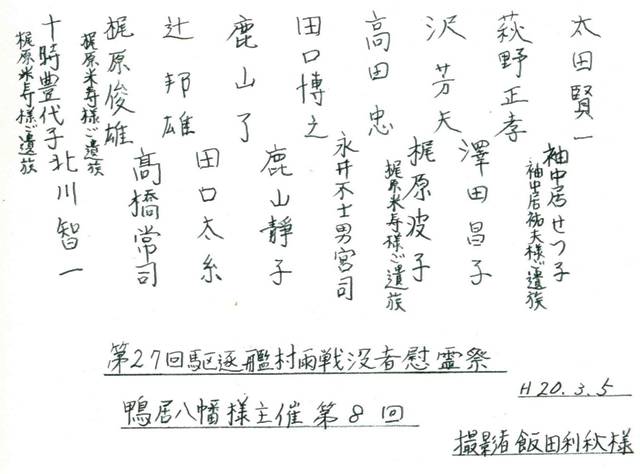 太田賢一
萩野正孝
沢芳夫
高田忠
田口博之
鹿山了
辻邦雄
梶原俊雄
梶原米寿様ご遺族
十時豊代子
梶原米寿様ご遺族
袖中居せつ子
袖中居祐夫様ご遺族
澤田昌子
梶原波子
梶原米寿様ご遺族
永井不士男宮司
鹿山靜子
田口太糸
髙橋常司
北川智一
第27回駆逐艦村雨戦没者慰霊祭
鴨居八幡様主催第8回
H20.3.5
撮影者飯田利秋様